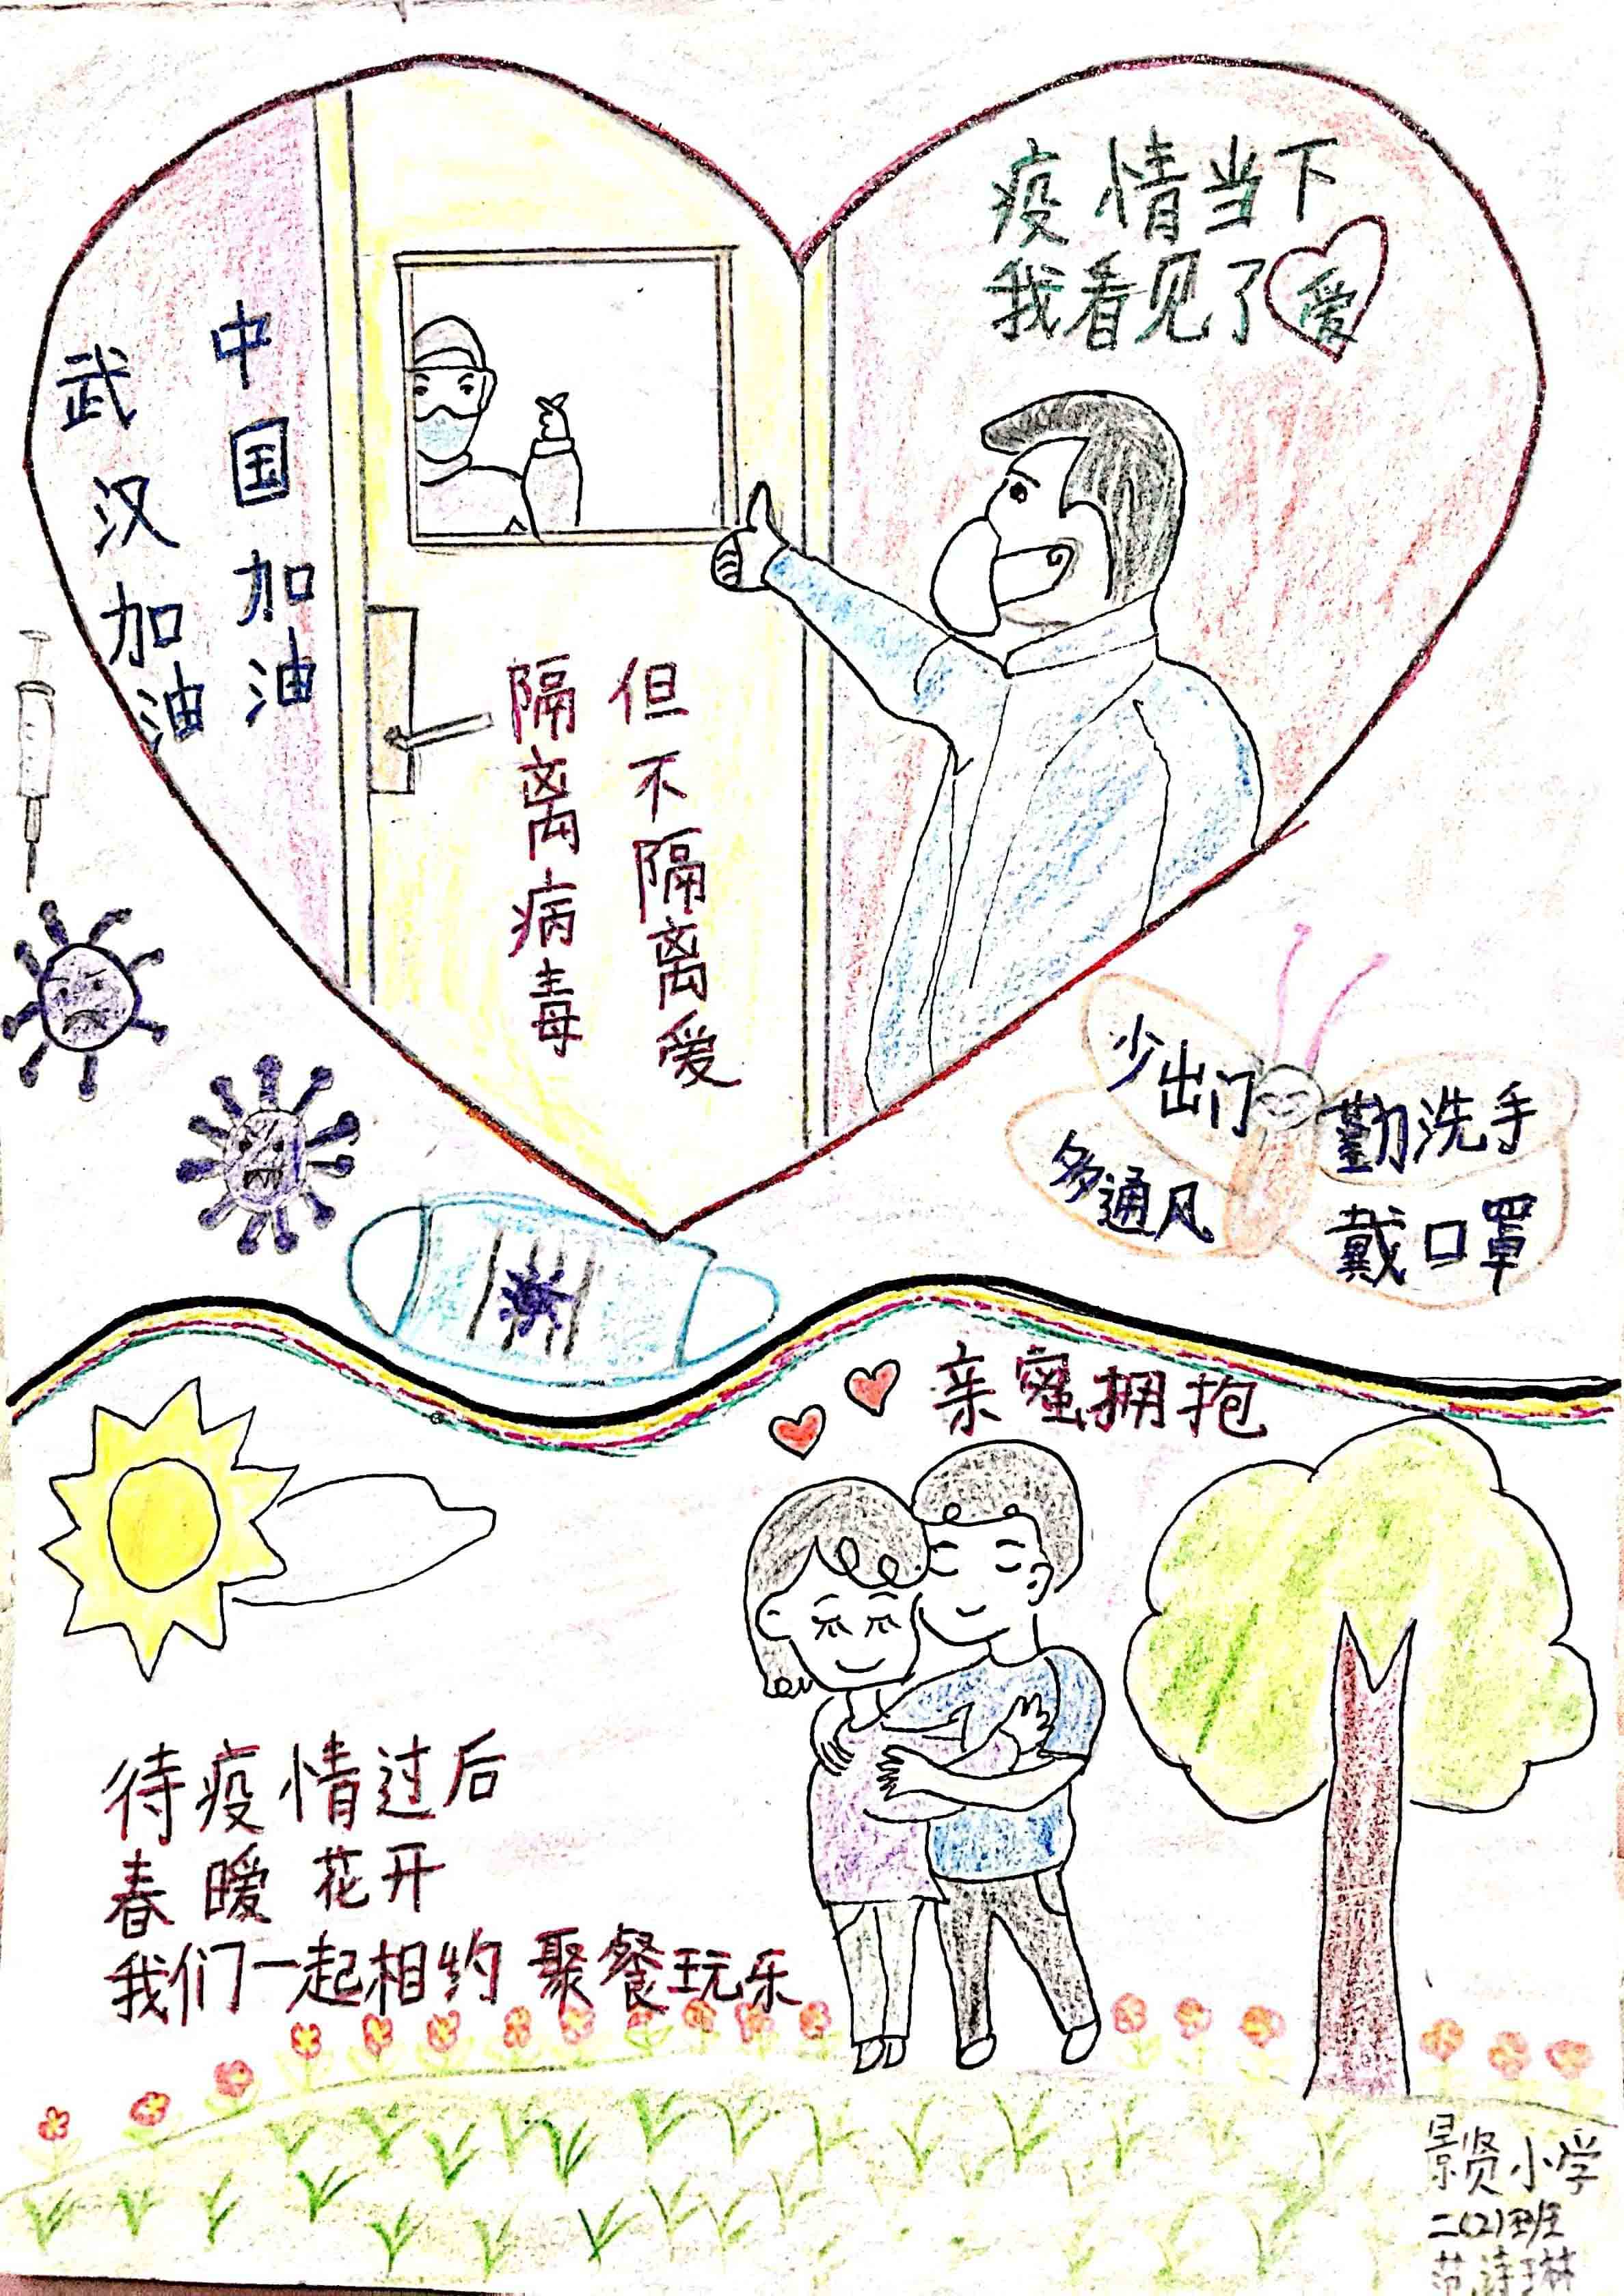 疫情当下
我看见了爱
武汉加油
中国加油
隔离病毒
但不隔离爱
少出门
多通风
勤洗手
戴口罩
亲蜜拥抱
待疫情过后
春暧花开
我们一起相约聚餐玩乐
景贤小学
二(2)班
范诗琳